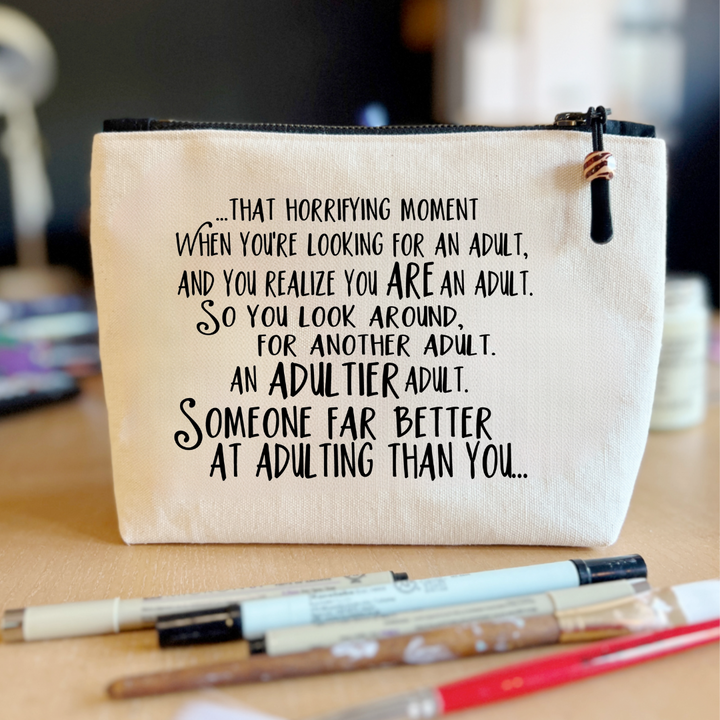 ...THAT HORRIFYING MOMENT
WHEN YOU'RE LOOKING FOR AN ADULT,
AND YOU REALIZE YOU ARE AN ADULT.
SO YOU LOOK AROUND,
FOR ANOTHER ADULT.
AN ADULTIER ADULT.
SOMEONE FAR BETTER
AT ADULTING THAN YOU...